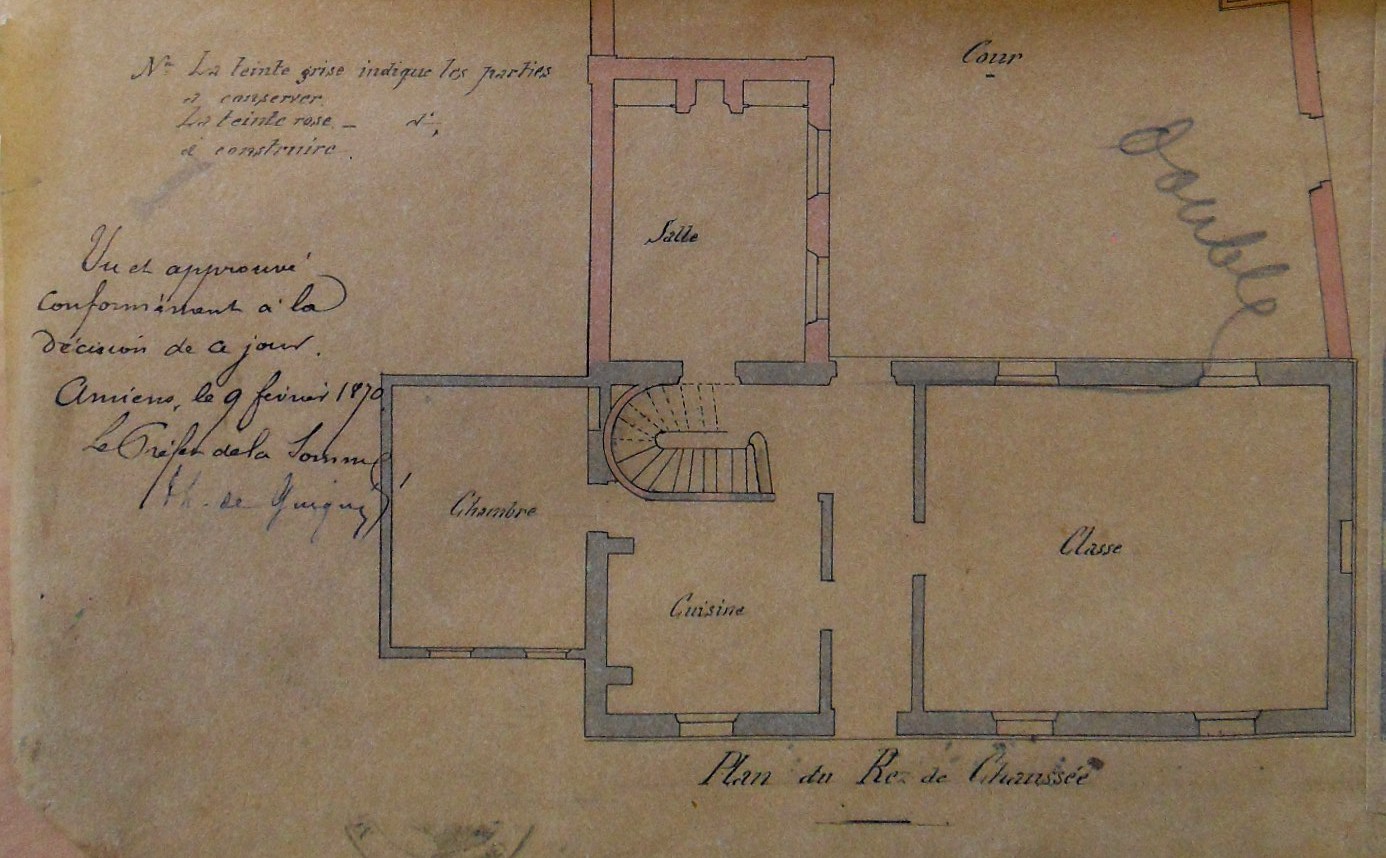 Nª La teinte grise indique les parties
à conserver.
La teinte rose _ dº,
à construire.
Cour
Double
Salle
Vu et approuvé
conformément à la
décision de ce jour.
Amiens, le 9 février 1870
Le Préfet de la Somme
Chambre
Classe
Cuisine
Plan du Rez de Chaussée